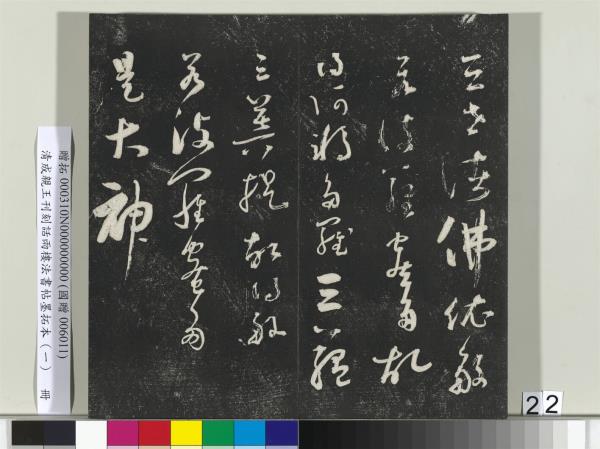 三世諸佛依般
若波羅蜜多故
得阿耨多羅三藐
三菩提故知般
若波羅蜜多
是大神
贈拓 000310N000000000 (國贈 006011)
清成親王刊刻話雨樓法書帖墨拓本（一） 冊
22